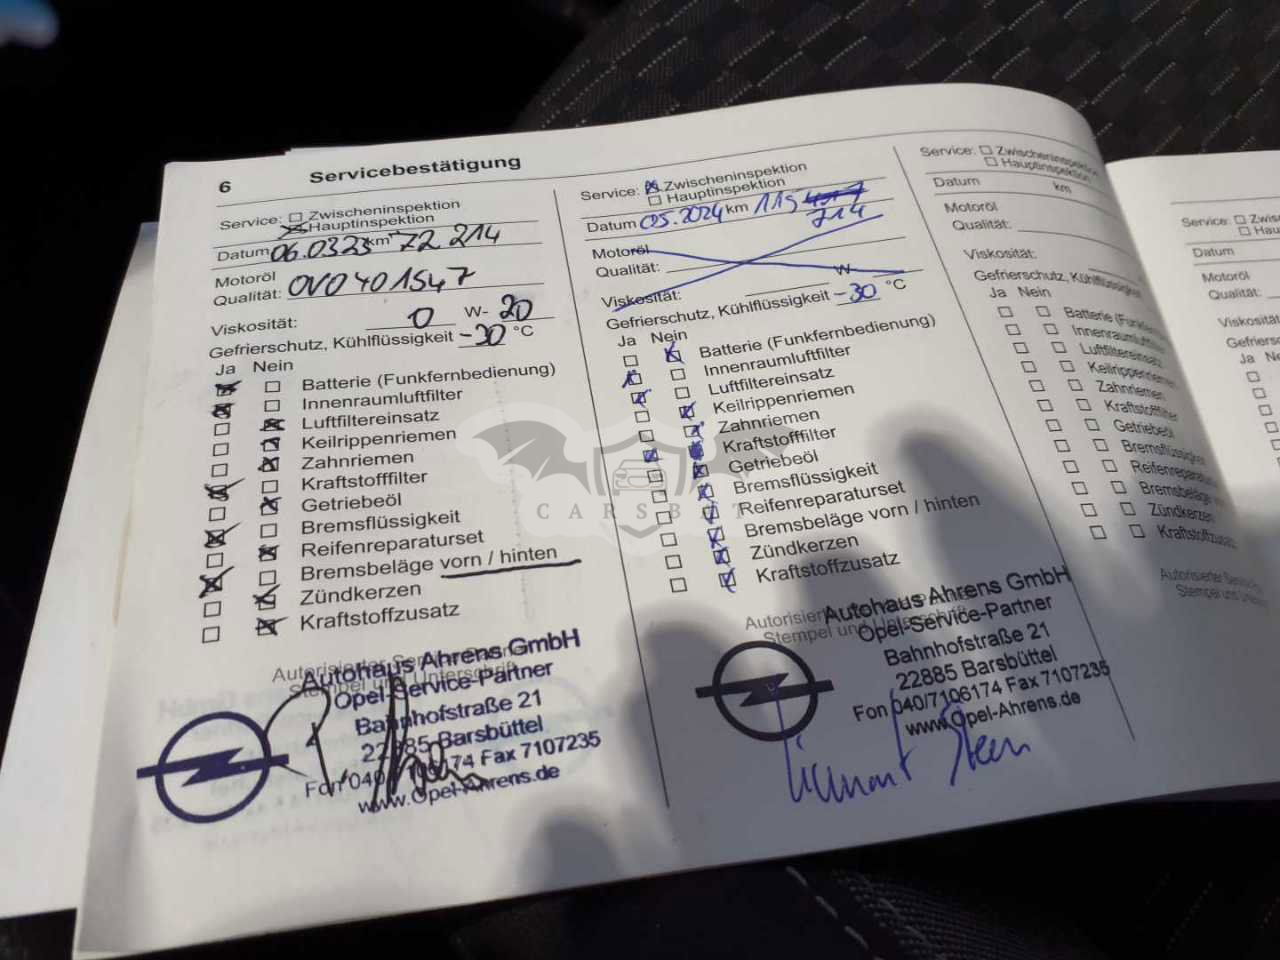 6 Servicebestätigung
Service: Zwischeninspektion
Hauptinspektion
Datum 06.0323 km 72 214
Motoröl
Qualität: OVO401547
Viskosität: 0 W- 20
Gefrierschutz, Kühlflüssigkeit -30 °C
Ja Nein
Batterie (Funkfernbedienung)
Innenraumluftfilter
Luftfiltereinsatz
Keilrippenriemen
Zahnriemen
Kraftstofffilter
Getriebeöl
Bremsflüssigkeit
Reifenreparaturset
Bremsbeläge vorn / hinten
Zündkerzen
Kraftstoffzusatz
Autorisierter Service
Stempel und Unterschrift
Autohaus Ahrens GmbH
Opel-Service-Partner
Bahnhofstraße 21
22885 Barsbüttel
Fon 040/7106174 Fax 7107235
www.Opel-Ahrens.de
Service: Zwischeninspektion
Hauptinspektion
Datum 05.2024 km 115
714
Motoröl
Qualität:
Viskosität: W-
Gefrierschutz, Kühlflüssigkeit -30 °C
Ja Nein
Batterie (Funkfernbedienung)
Innenraumluftfilter
Luftfiltereinsatz
Keilrippenriemen
Zahnriemen
Kraftstofffilter
Getriebeöl
Bremsflüssigkeit
Reifenreparaturset
Bremsbeläge vorn / hinten
Zündkerzen
Kraftstoffzusatz
Autorisierter
Stempel und Unterschrift
Autohaus Ahrens GmbH
Opel-Service-Partner
Bahnhofstraße 21
22885 Barsbüttel
Fon 040/7106174 Fax 7107235
www.Opel-Ahrens.de
Service: Zwischeninspektion
Hauptinspektion
Datum km
Motoröl
Qualität:
Viskosität:
Gefrierschutz, Kühlflüssigkeit
Ja Nein
Batterie (Funkf
Innenraumluftfilter
Luftfiltereinsatz
Keilrippenriemen
Zahnriemen
Kraftstofffilter
Getriebeöl
Bremsflüssigkeit
Reifenreparaturset
Bremsbeläge
Zündkerzen
Kraftstoffzusatz
Autorisierter
Stempel und
Service: Zwisch
Haupt
Datum
Motoröl
Qualität:
Viskosität
Gefriersc
Ja Ne
CARSBAT